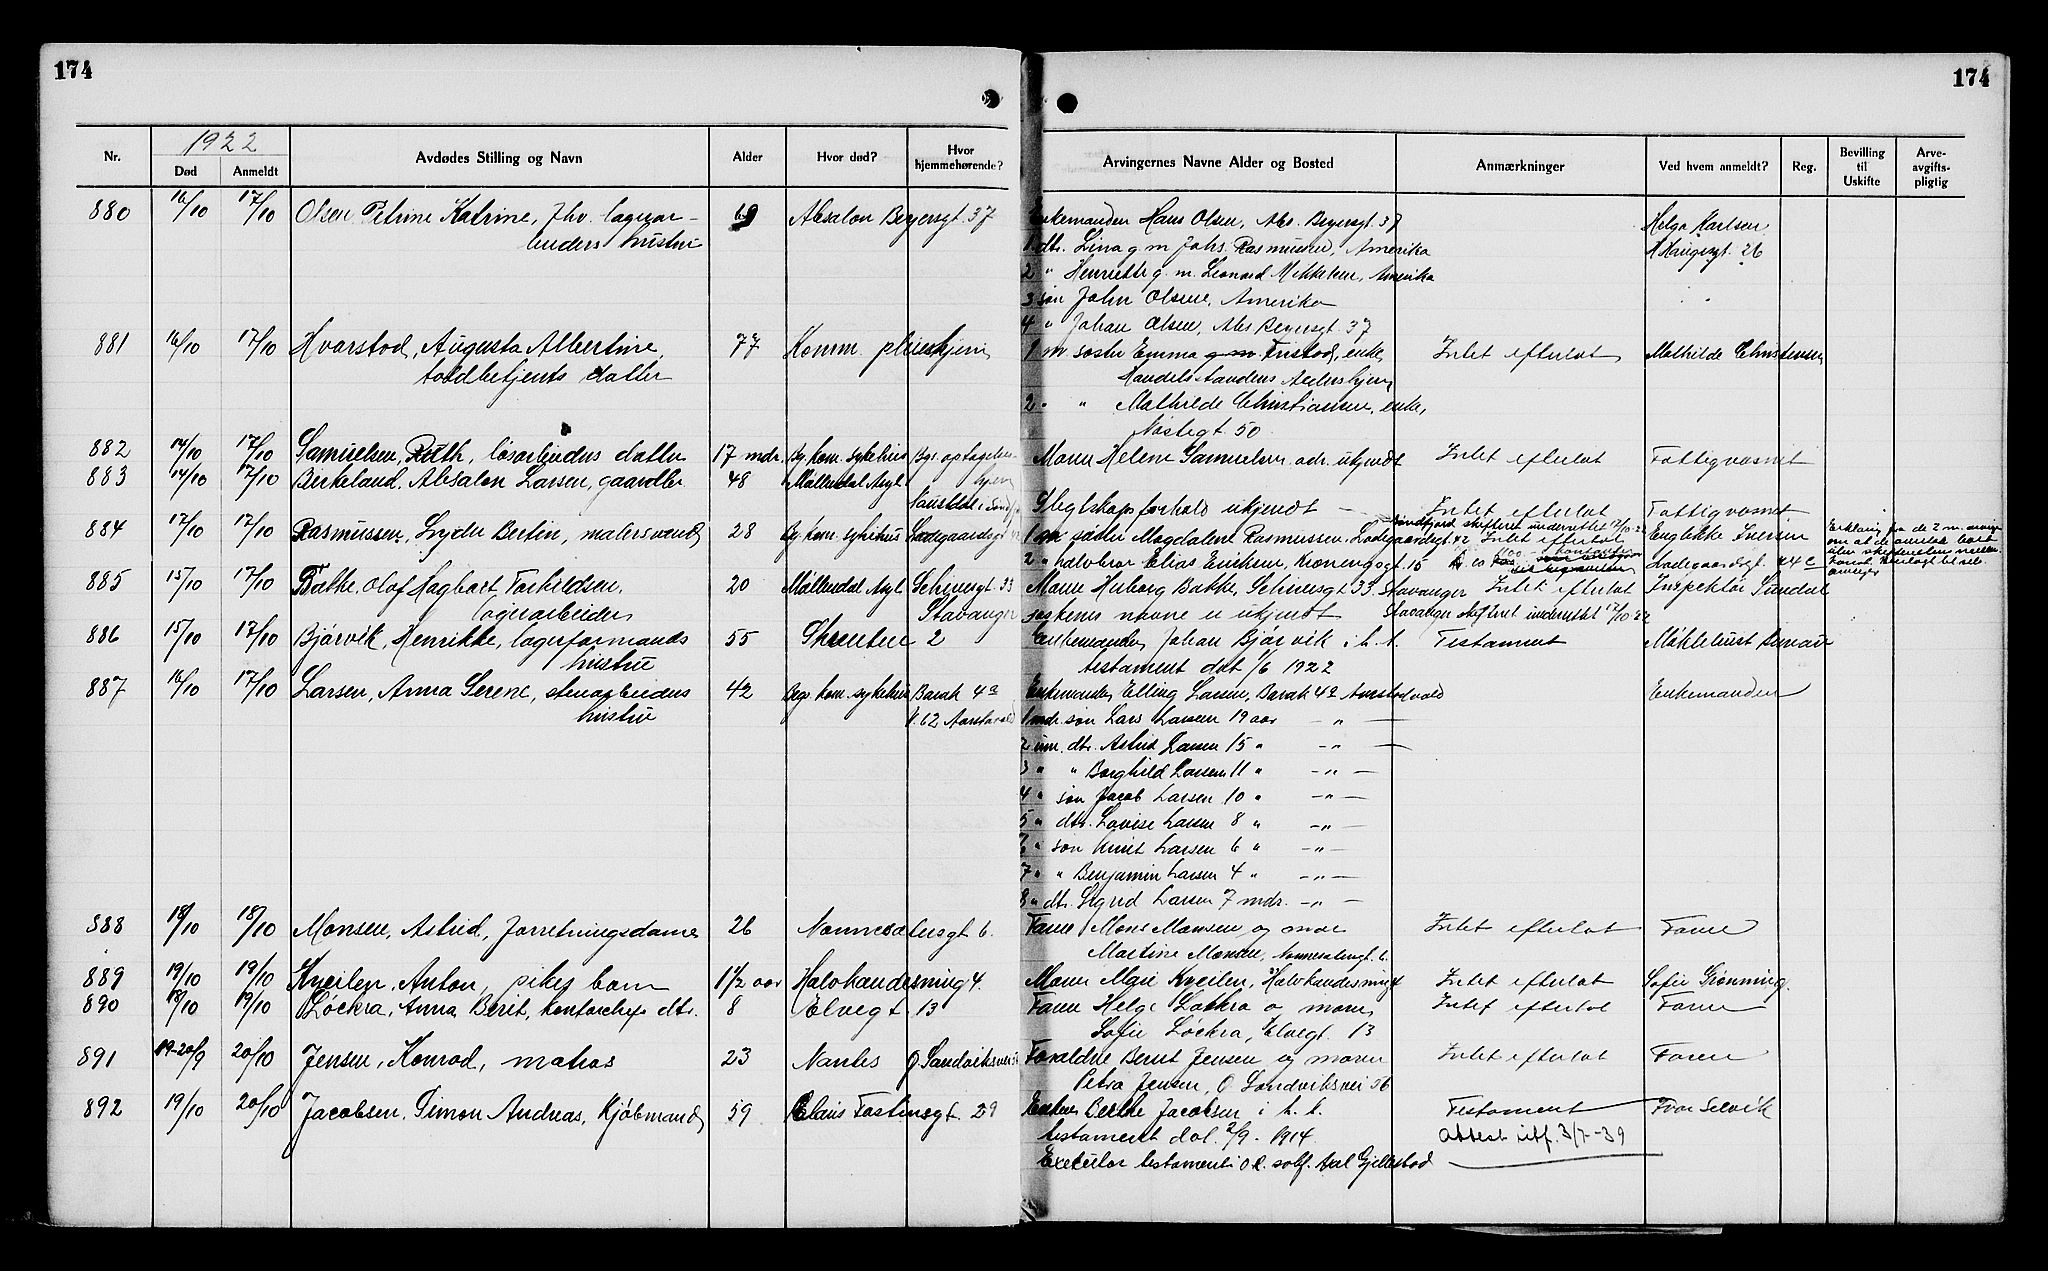 174
174
1922
Nr. Død Anmeldt Avdødes Stilling og Navn Alder Hvor død? Hvor hjemmehørende? Arvingernes Navne Alder og Bosted Anmærkninger Ved hvem anmeldt? Reg. Bevilling til Uskifte Arve-avgifts-pligtig
880 16/10 17/10 Olsen Petrine Katrine, fhv. lagerar- 69 Absalon Beyersgt. 37 Enkemanden Hans Olsen, Abs. Beyersgt. 37 Helga Karlsen
beiders hustru 1 dtr. Lina g m Johs. Rasmussen, Amerika H Haugesgt. 26
2 " Henriette g. m. Leonard Mikkelsen, Amerika
3 søn John Olsen, Amerika
4 " Johan Olsen, Abs Beyersgt. 37
881 16/10 17/10 Hvarstod, Augusta Albertine, 77 Komm. pleiehjem 1 m. søster Emma g. m. Fristod, enke, Intet efterlot Mathilde Christensen
toldbetjents datter Handelsstandens Aldershjem
2 " " Mathilde Christiansen, enke,
Nøstegt. 50
882 14/10 17/10 Samuelsen, Ruth, løsarbeiders datter 17 mdr. By. kom. sykehus Bgs. optagelses- Moren Helene Samuelsen adr. ukjendt Intet efterlot Fattigvæsnet
hjem
883 14/10 17/10 Birkeland, Absalon Larsen, gaardbr. 48 Møllendal Asyl Naustdal i Søndfj. Slegtskapsforhold ukjendt — Intet efterlot Fattigvæsnet
Søndfjord skifteret underrettet 17/10-22
884 17/10 17/10 Rasmussen, Lyder Bertin, malersvend 28 By. kom. sykehus Ladegaardsgt 42 1 m søster Magdalene Rasmussen, Ladegaardsgt. 42 Intet efterlot Englekke Iversen
2 " halvbror Elias Eriksen, Kroningsgt. 15 Ladegaardsgt. 44c
Erklæring fra de 2 m. arvinger om at de
885 15/10 17/10 Bakke, Olaf Hagbart Torkeldsen, 20 Møllendal Asyl Schivesgt. 33 Moren Hilborg Bakke, Schivesgt 33. Stavanger Intet efterlot Inspektør Sundal
lagerarbeider Stavanger søskenes navne er ukjendt Stavanger skifteret underrettet 17/10 22
886 15/10 17/10 Bjørvik, Henrikke, lagerformands 55 Skreuten 2 Enkemanden Johan Bjørvik i h. t. Testament
hustru testament dat 1/6 1922
887 16/10 17/10 Larsen, Anna Serene, stenarbeiders 42 Bgs kom. sykehus Barak 4a Enkemanden Elling Larsen, Barak 4a Aarstadvold Enkemanden
hustru V. 62 Aarstadvold 1 mdr. søn Lars Larsen 19 aar — " —
2 um. dtr. Astrid Larsen 15 " — " —
3 " " Borghild Larsen 11 " — " —
4 " søn Jacob Larsen 10 " — " —
5 " dtr. Lovise Larsen 8 " — " —
6 " søn Knut Larsen 6 " — " —
7 " " Benjamin Larsen 4 " — " —
8 " dtr. Sigrid Larsen 7 mdr. — " —
888 18/10 18/10 Monsen, Astrid, forretningsdame 26 Nonnesætersgt 6. Faren Mons Monsen og mor Intet efterlot Faren
Martine Monsen, Nonnesætersgt. 6.
889 19/10 19/10 Kveilen, Anton, pikes barn 1 1/2 aar Halvkandesmug 4. Moren Mari Kveilen, Halvkandesmug 4 Intet efterlot Sofie Grønning.
890 18/10 19/10 Løckra, Anna Berit, kontorchefs dtr. 8 Elvegt 13 Faren Helge Løckra o moren Intet efterlot Faren
Sofie Løckra, Elvegt. 13
891 19-20/9 20/10 Jensen, Konrad, matros 23 Nantes Ø Sandviksvei 56 Forældre Bernt Jensen og moren Intet efterlot Faren
Petra Jensen, Ø Sandviksvei 56
892 19/10 20/10 Jacobsen, Simon Andreas, Kjøbmand 59 Claus Fastingsgt. 29 Enken Berthe Jacobsen i h. t. Testament Ivar Selvik
testament dat. 2/9 - 1914. Attest utf. 3/7-39
Executor testamenti o.r. solf. Axl Gjellestad